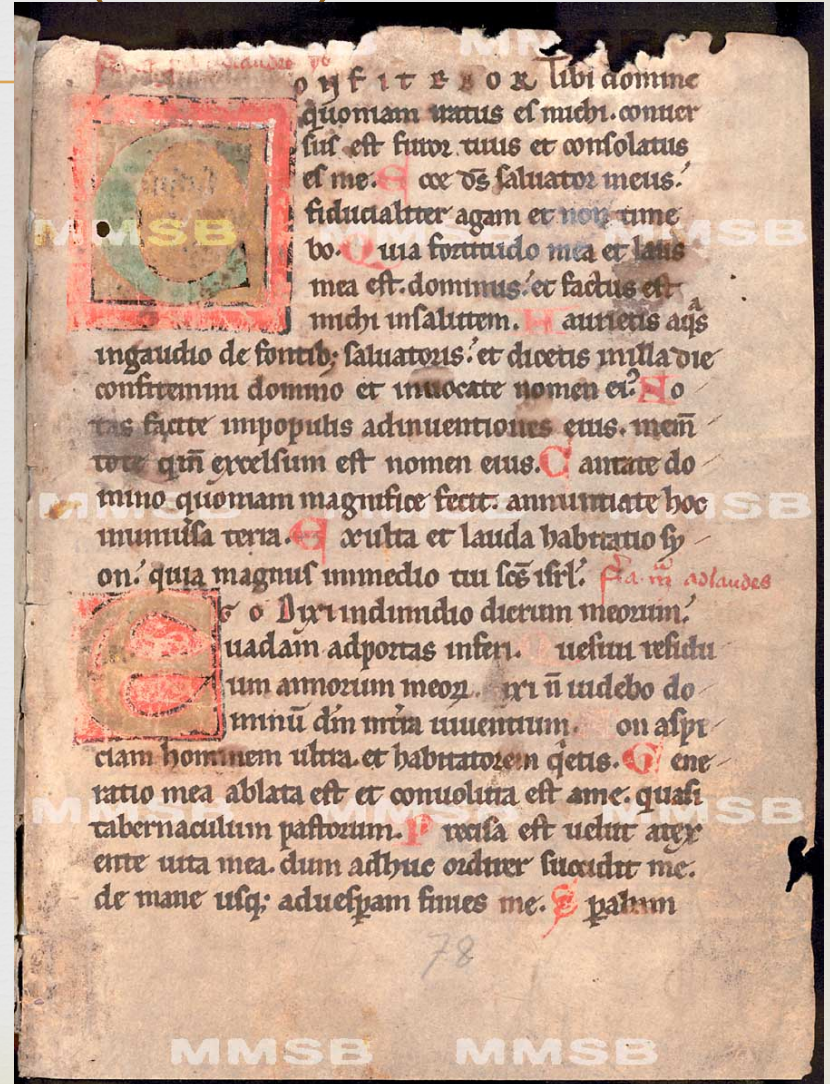 adlaudes
Confitebor tibi domine
quoniam iratus es michi. conuer
sus est furor tuus et consolatus
es me. Ecce ds̄ saluator meus.
fiducialiter agam et non time
bo. Quia fortitudo mea et laus
mea est. dominus. et factus est
michi insalutem. Haurietis aqᵃs
ingaudio de fontib; saluatoris. et dicetis inilla die
confitemini domino et inuocate nomen ei᾽. No
tas facite inpopulis adinuentiones eius. mem̄
tote qm̄ excelsum est nomen eius. Cantate do
mino quoniam magnifice fecit. annuntiate hoc
inuniuͥsa terra. Exulta et lauda habitatio sy
on. quia magnus inmedio tui scs̄ isrl̄. adlaudes
Ego Dixi indimidio dierum meorum.
uadam adportas inferi. Quesiui residu
um annorum meoꝝ. ixi n̄ uidebo do
minū dm̄ intra uiuentium. on aspi
ciam hominem ultra. et habitatorem qͥetis. Gene
ratio mea ablata est et conuoluta est ame. quasi
tabernaculum pastorum. Precisa est uelut atex
ente uita mea. dum adhuc ordirer succidit me.
de mane usq; aduesꝑam finies me. Sꝑabam
78
MMSB